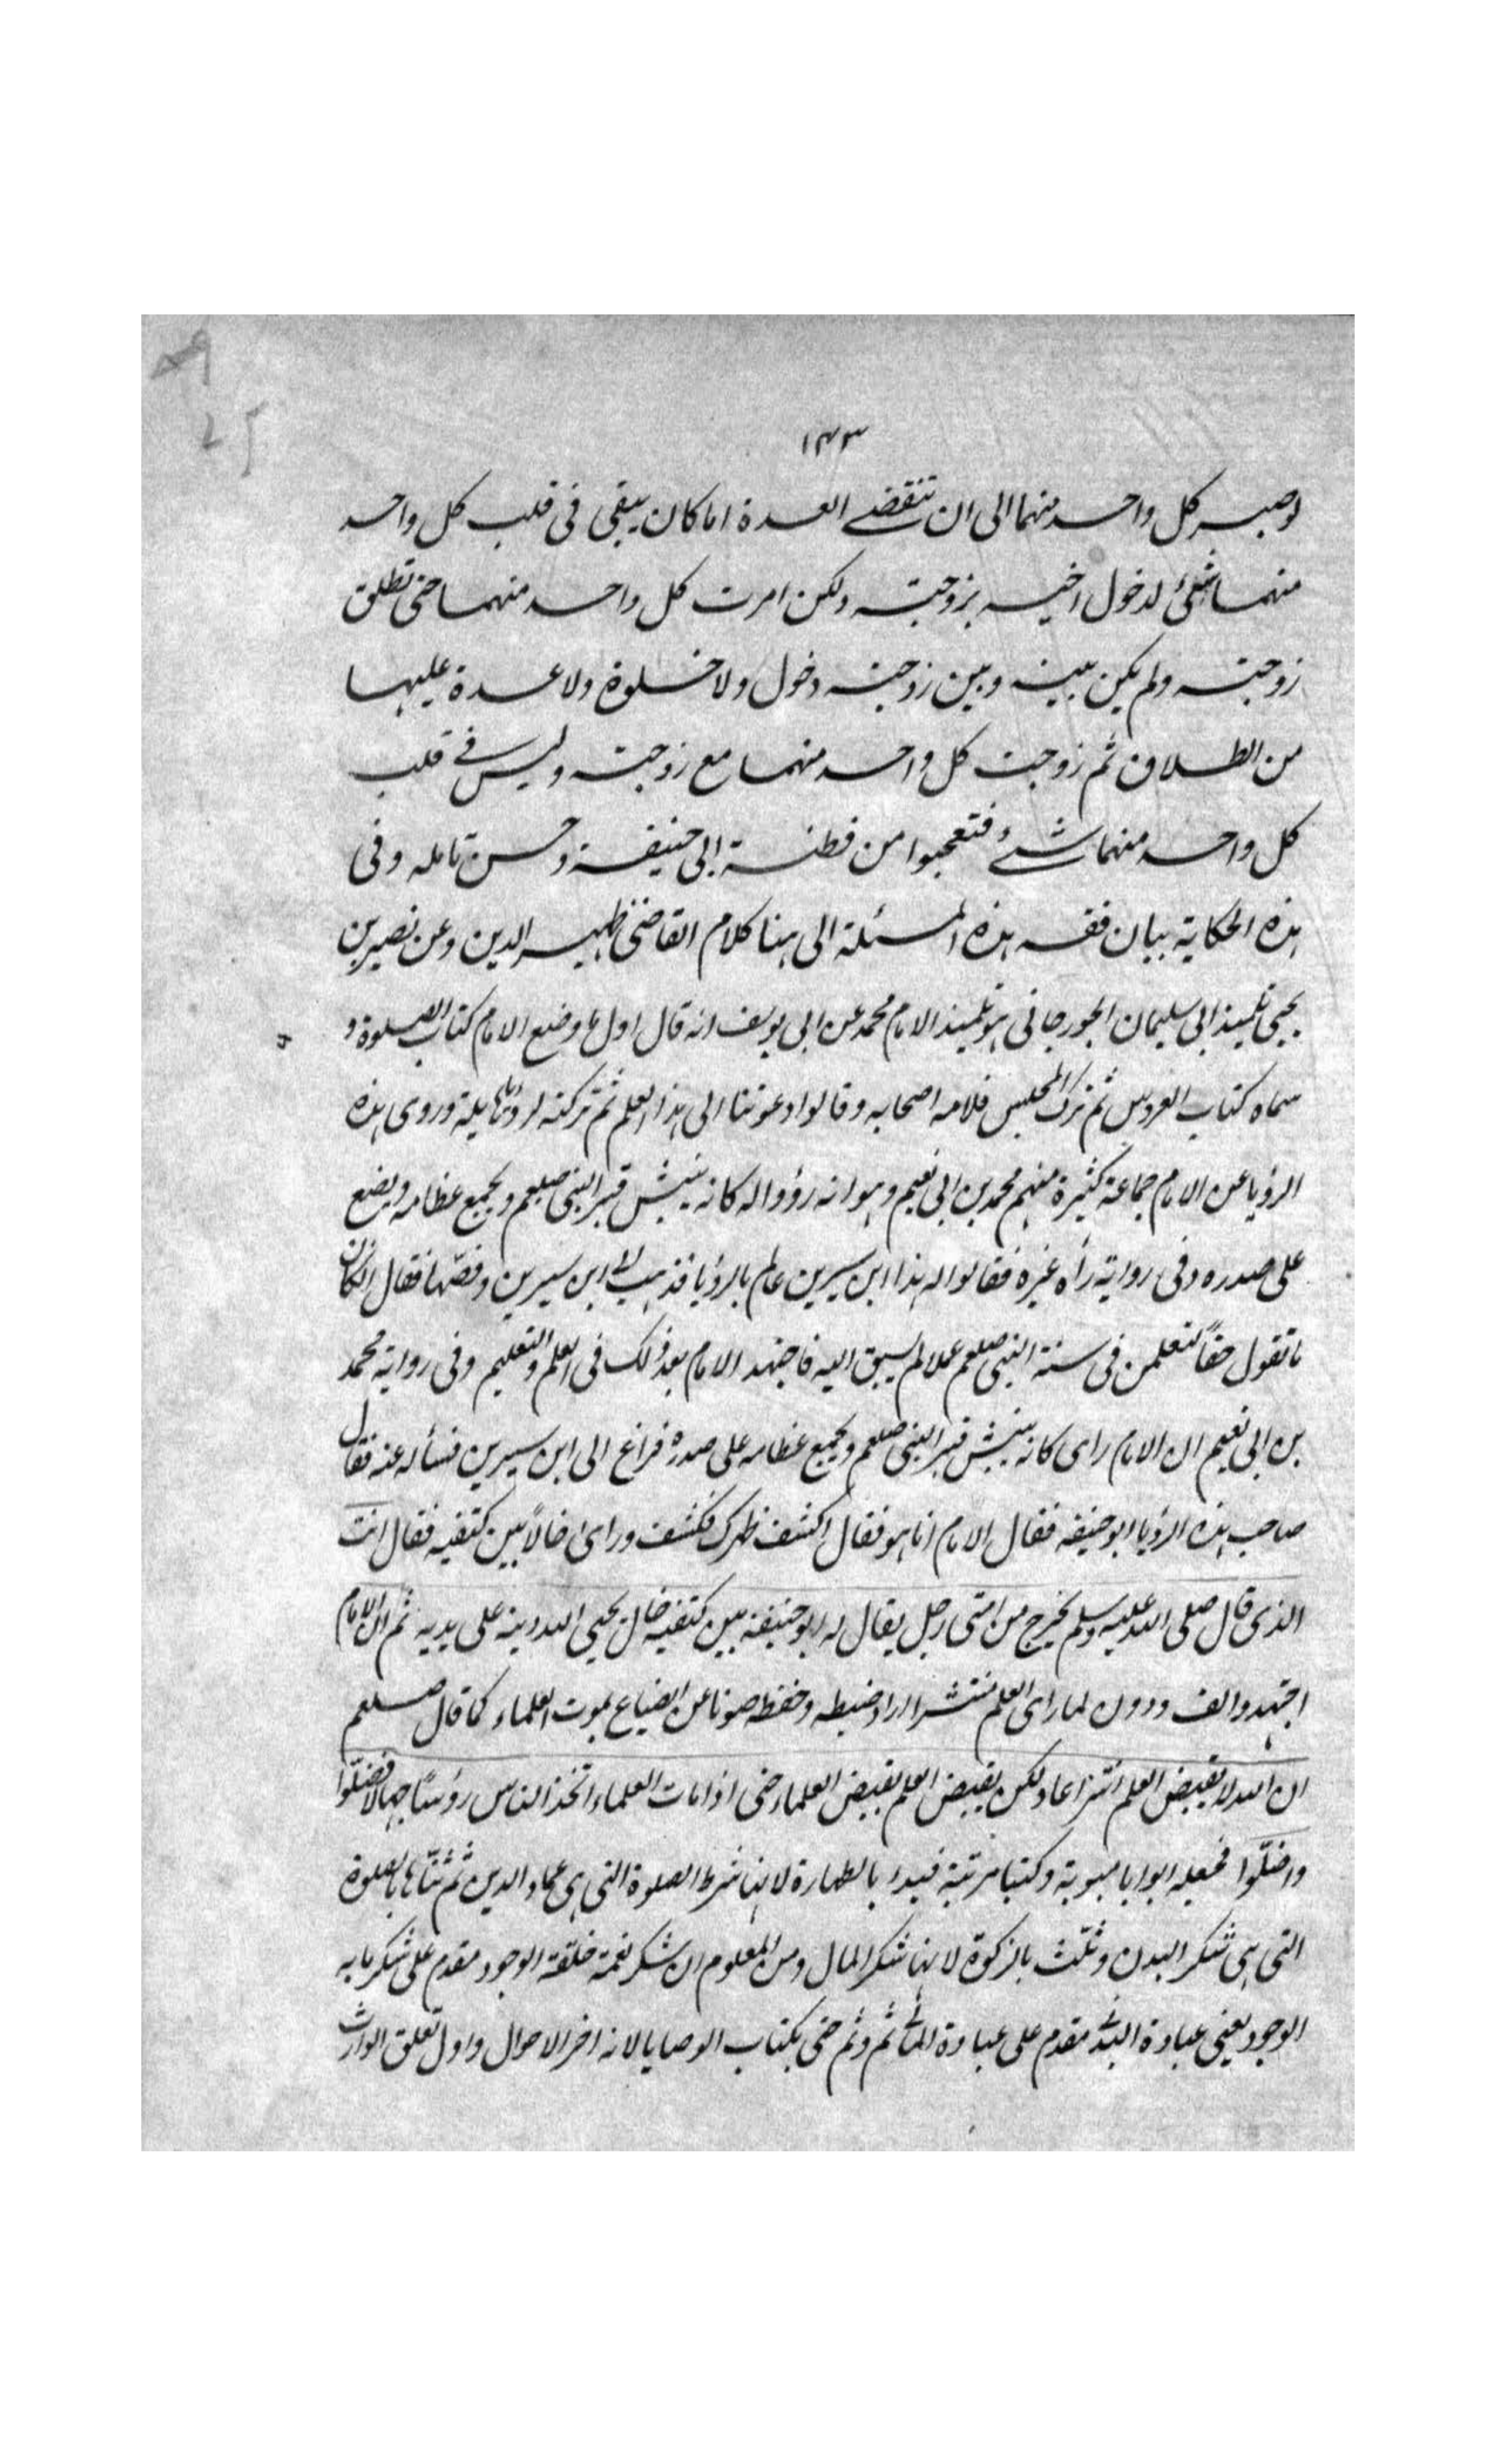 ١٤٣
لو صبر كل واحد منهما الى ان تنقضے العدة اما كان يبقى فى قلب كل واحد
منهما شئ لدخول اخيه بزوجته ولكن امرت كل واحد منهما حتى تطلق
زوجته ولم يكن بينه وبين زوجته دخول ولا خلوة ولا عدة عليها
من الطلاق ثم زوجت كل واحد منهما مع زوجته وليس فے قلب
كل واحد منهما شئ فتعجبوا من فطنة ابى حنيفة وحسن تامله وفى
هذه الحكاية بيان فقه هذه المسئلة الى هنا كلام القاضى ظهير الدين وعن نصير بن
يحيى تلميذ ابى سليمان الجورجانى هو تلميذ الامام محمد عن ابى يوسف انه قال اول ما وضع الامام كتاب الصلوة و
سماه كتاب العروس ثم ترك المجلس فلامه اصحابه وقالوا دعوتنا الى هذا العلم ثم تركته لرؤيا هايلة وروى هذه
الرؤيا عن الامام جماعة كثيرة منهم محمد بن ابى نعيم وهو انه رؤوا له كانه ينبش قبر النبى صلعم ويجمع عظامه ويضع
على صدره وفى رواية رأه غيره فقالوا له هذا ابن سيرين عالم بالرؤيا فذهب الى ابن سيرين وقصّها فقال ان كان
ما تقول حقاً لتعلمن فى سنة النبى صلعم عملا لم يسبق اليه فاجتهد الامام بعد ذلك فى العلم والتعليم وفى رواية محمد
بن ابى نعيم ان الامام راى كانه ينبش قبر النبى صلعم ويجمع عظامه على صدره فراغ الى ابن سيرين فسأله عنه فقال
صاحب هذه الرؤيا ابو حنيفه فقال الامام انا هو فقال اكشف ظهرك فكشف وراى خالاً بين كتفيه فقال انت
الذى قال صلى الله عليه وسلم يخرج من امتى رجل يقال له ابو حنيفة بين كتفيه خال يحيى الله دينه على يديه ثم ان الامام
اجتهد والف ودون لما راى العلم منتشرا اراد ضبطه وحفظه صونا عن الضياع بموت العلماء كما قال صلعم
ان الله لا يقبض العلم انتزاعا ولكن يقبض العلم بقبض العلماء حتى اذا مات العلماء اتخذ الناس رؤسًا جهالا فضلّوا
واضلّوا فجعله ابوابا مبوبة وكتبا مرتبة فبدء بالطهارة لانها شرط الصلوة التى هى عماد الدين ثم ثنّاها بالصلوة
التى هى شكر البدن وثلّث بالزكوة لانها شكر المال ومن المعلوم ان شكر نعمة خلقة الوجود مقدم على شكر ما به
الوجود يعنى عبادة البدنے مقدم على عبادة المالے ثم وثم حتى بكتاب الوصايا لانه اخر الاحوال واول تعلق الوارث